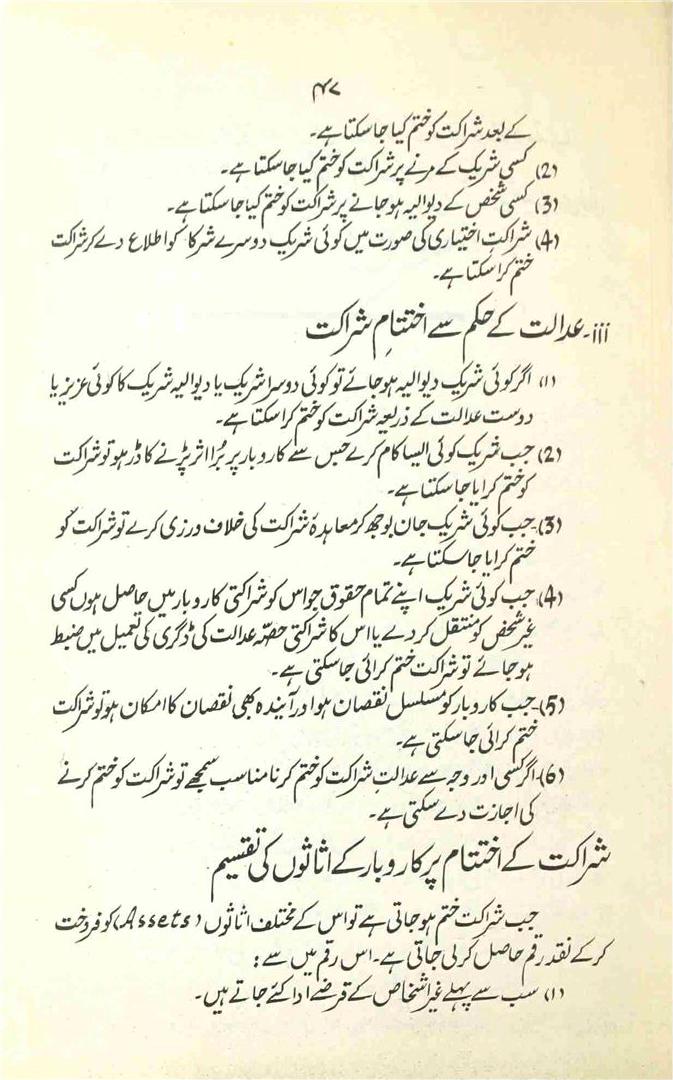 ۴۷
کے بعد شراکت کو ختم کیا جاسکتا ہے۔
(2) کسی شریک کے مرنے پر شراکت کو ختم کیا جاسکتا ہے۔
(3) کسی شخص کے دیوالیہ ہوجانے پر شراکت کو ختم کیا جاسکتا ہے۔
(4) شراکتِ اختیاری کی صورت میں کوئی شریک دوسرے شرکا کو اطلاع دے کر شراکت
ختم کراسکتا ہے۔
iii۔ عدالت کے حکم سے اختتامِ شراکت
(۱) اگر کوئی شریک دیوالیہ ہوجائے تو کوئی دوسرا شریک یا دیوالیہ شریک کا کوئی عزیز یا
دوست عدالت کے ذریعہ شراکت کو ختم کراسکتا ہے۔
(2) جب شریک کوئی ایسا کام کرے جس سے کاروبار پر بُرا اثر پڑنے کا ڈر ہو تو شراکت
کو ختم کرایا جاسکتا ہے۔
(3)۔ جب کوئی شریک جان بوجھ کر معاہدۂ شراکت کی خلاف ورزی کرے تو شراکت کو
ختم کرایا جاسکتا ہے۔
(4)۔ جب کوئی شریک اپنے تمام حقوق جو اس کو شراکتی کاروبار میں حاصل ہوں کسی
غیر شخص کو منتقل کردے یا اس کا شراکتی حصّہ عدالت کی ڈگری کی تعمیل میں ضبط
ہوجائے تو شراکت ختم کرائی جاسکتی ہے۔
(5)۔ جب کاروبار کو مسلسل نقصان ہو اور آیندہ بھی نقصان کا امکان ہو تو شراکت
ختم کرائی جاسکتی ہے۔
(6)۔ اگر کسی اور وجہ سے عدالت شراکت کو ختم کرنا مناسب سمجھے تو شراکت کو ختم کرنے
کی اجازت دے سکتی ہے۔
شراکت کے اختتام پر کاروبار کے اثاثوں کی تقسیم
جب شراکت ختم ہوجاتی ہے تو اس کے مختلف اثاثوں (Assets) کو فروخت
کرکے نقد رقم حاصل کرلی جاتی ہے۔ اس رقم میں سے :
(۱) سب سے پہلے غیر اشخاص کے قرضے ادا کئے جاتے ہیں۔